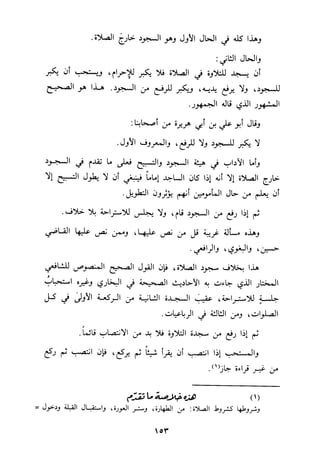 وهذا كله في الحال الأول وهو السجود خارج الصلاة.
والحال الثاني:
أن يسجد للتلاوة في الصلاة فلا يكبر للإحرام، ويستحب أن يكبر
للسجود، ولا يرفع يديه، ويكبر للرفع من السجود. هذا هو الصحيح
المشهور الذي قاله الجمهور.
وقال أبو علي بن أبي هريرة من أصحابنا:
لا يكبر للسجود ولا للرفع، والمعروف الأول.
وأما الآداب في هيئة السجود والتسبيح فعلى ما تقدم في السجود
خارج الصلاة إلا أنه إذا كان الساجد إماماً فينبغي أن لا يطول التسبيح إلا
أن يعلم من حال المأمومين أنهم يؤثرون التطويل.
ثم إذا رفع من السجود قام، ولا يجلس للاستراحة بلا خلاف.
وهذه مسألة غريبة قل من نص عليها، وممن نص عليها القاضي
حسين، والبغوي، والرافعي.
هذا بخلاف سجود الصلاة، فإن القول الصحيح المنصوص للشافعي
المختار الذي جاءت به الأحاديث الصحيحة في البخاري وغيره استحباب
جلسة للاستراحة، عقيب السجدة الثانية من الركعة الأولى في كل
الصلوات، ومن الثالثة في الرباعيات.
ثم إذا رفع من سجدة التلاوة فلا بد من الانتصاب قائماً.
والمستحب إذا انتصب أن يقرأ شيئاً ثم يركع، فإن انتصب ثم ركع
من غير قراءة جاز(١).
(١) هذه خلاصة ما تقدم
وشروطها كشروط الصلاة: من الطهارة، وستر العورة، واستقبال القبلة ودخول =
١٥٣